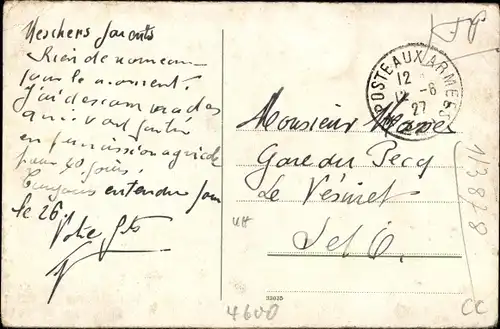 Mes chers parents
Rien de nouveau
pour le moment.
J'ai des camarades
qui vont partir
en permission agricole
pour 40 jours.
Toujours entendu pour
le 26.
Votre fils
F P
POSTE AUX ARMEES
12
12 - 6
27
Monsieur
Gare du Pecq
Le Vésinet
Set O.
113828
4600
CC